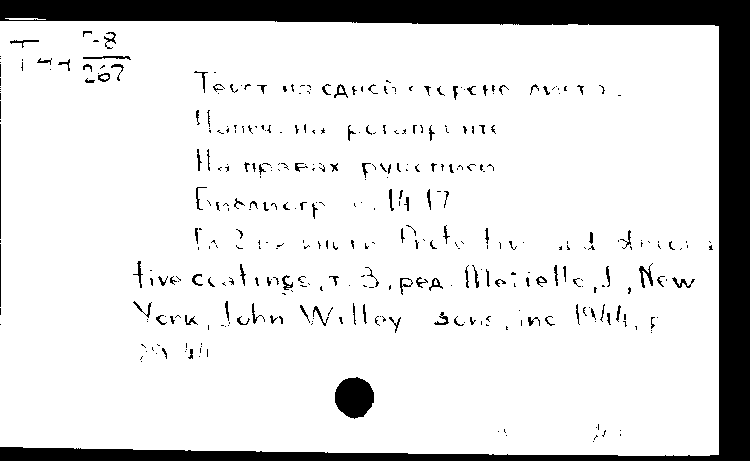 Т-8
267
Текст на одной стороне листа.
Напеч. на ротапринте
На правах рукописи
Библиогр. с. 14-17
Гл 2 из книги Protective and decora
tive coatings, т. 3, ред. Matiello, J, New
York, John Willey sons, inc 1944, p